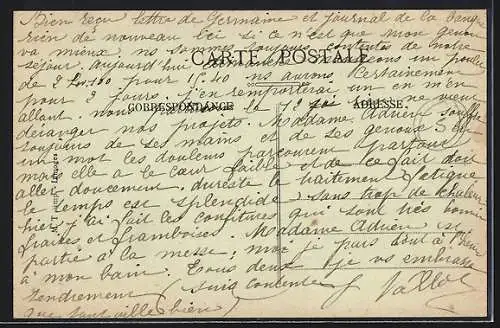 Bien reçu lettre de Germaine et journal de la Banque
rien de nouveau ici si ce n'est que mon genou
va mieux. nous sommes toujours contents de notre
séjour. aujourd'hui
CARTE POSTALE
de 2 pour 1f.40 nous aurons. Certainement
pour 2 jours. j'en remporterai un en m'en
allant.
CORRESPONDANCE
ADRESSE
ne vienne
déranger nos projets. Madame Adrien souffre
toujours de ses mains et de ses genoux en
un mot les douleurs parcourent partout
mais elle a le cœur faible et de ce fait doit
aller doucement. du reste le traitement fatigue
le temps est splendide sans trop de chaleur
hier j'ai fait les confitures qui sont très bonnes
fraises et framboises. Madame Adrien est
partie à la messe; moi je pars dont à l'heure
à mon bain. Tous deux je vs embrasse
tendrement (suis contente
que tout aille bien)